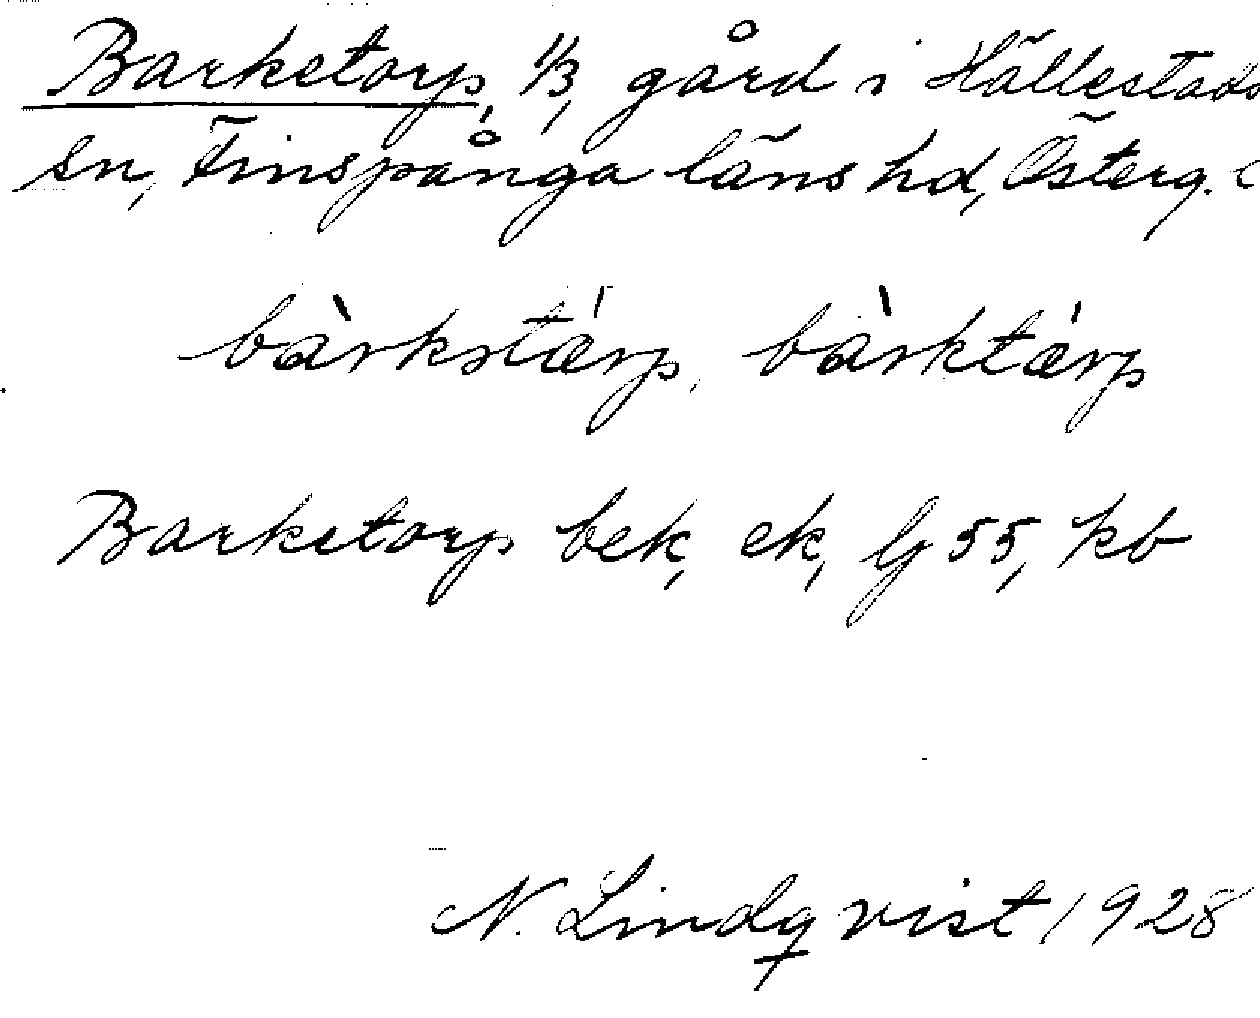 Barkstorp, 1/3, gård i Hällestads
sn, Finspånga läns hd, Österg.
bàrkstǽrp, bàrktǽrp
Barkstorp bek, ek, G 55, kb
N. Lindqvist 1928